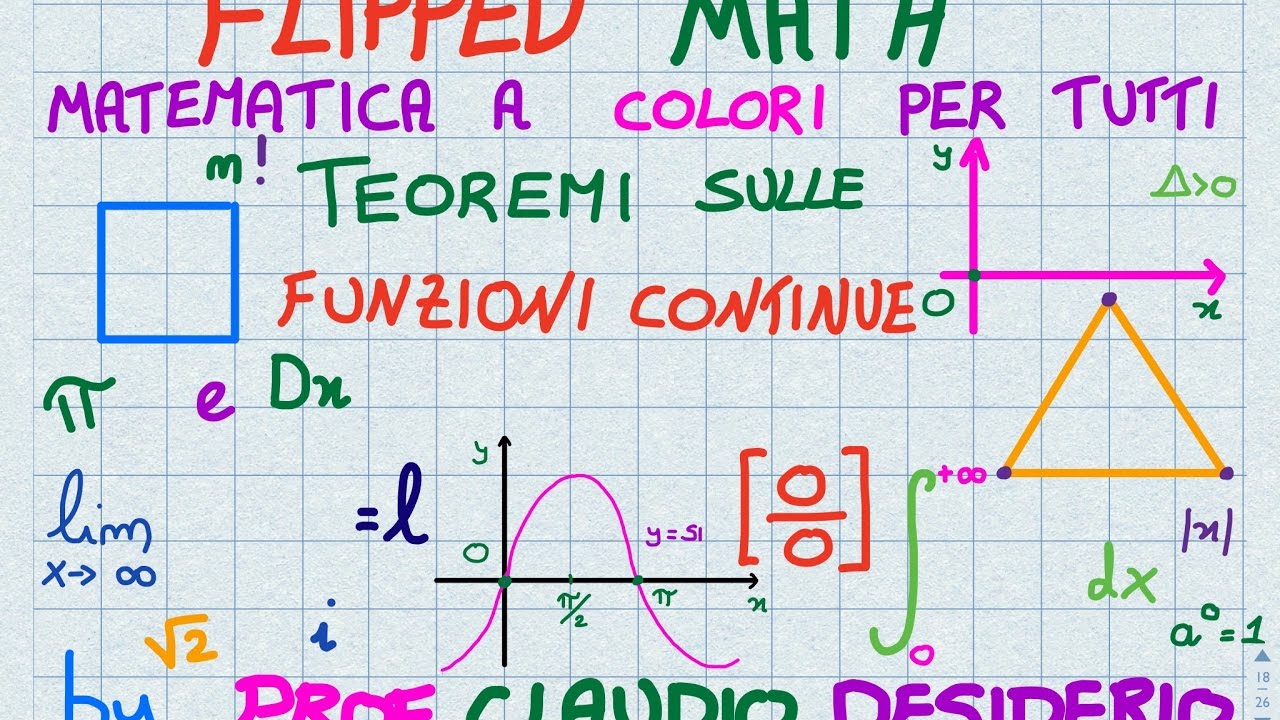 FLIPPED MATH
MATEMATICA A COLORI PER TUTTI
m! TEOREMI SULLE
y
Δ>0
FUNZIONI CONTINUE
O x
π e Dx
y
lim
x→ ∞
=l
O
y=si
π/2
π
x
[0/0]
∫
+∞
0
|x|
dx
√2 i
a⁰=1
by PROF CLAUDIO DESIDERIO
18
26